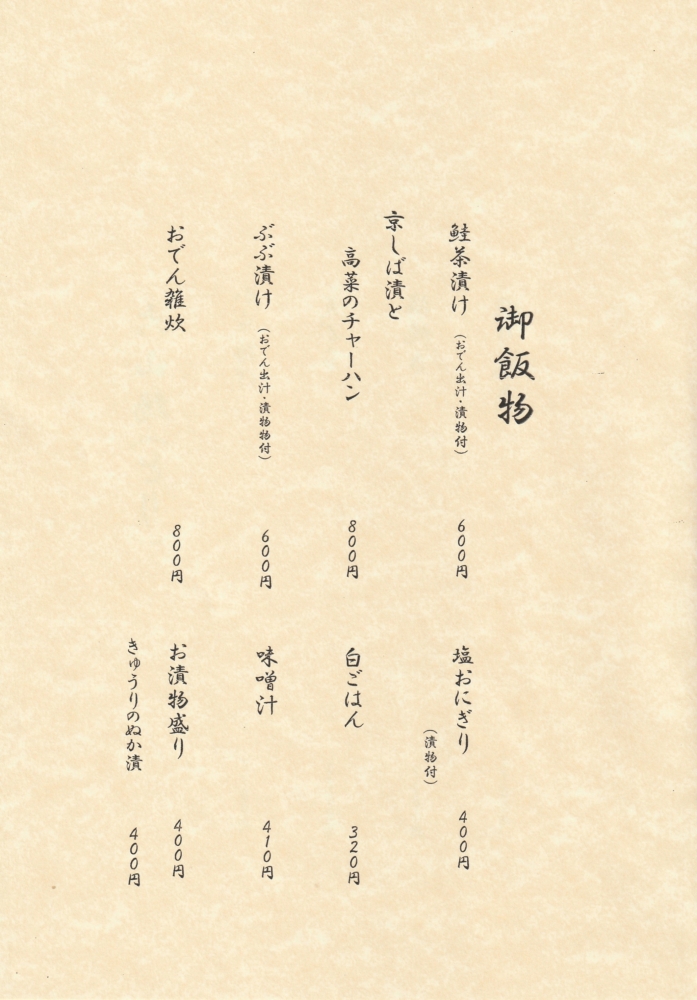 御飯物
鮭茶漬け（おでん出汁・漬物付）
600円
京しば漬と
高菜のチャーハン
800円
ぶぶ漬け（おでん出汁・漬物物付）
600円
おでん雑炊
800円
塩おにぎり
（漬物付）
400円
白ごはん
320円
味噌汁
410円
お漬物盛り
400円
きゅうりのぬか漬
400円